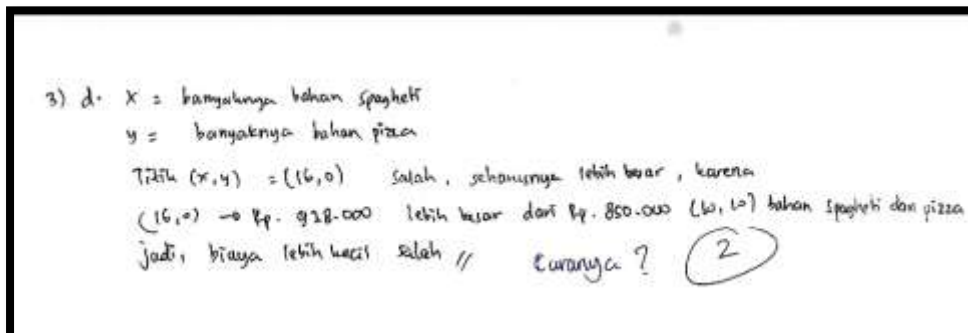 3) d. x = banyaknya bahan spagheti
y = banyaknya bahan pizza
Titik (x,y) = (16,0) salah, seharusnya lebih besar, karena
(16,0) → Rp. 928.000 lebih besar dari Rp. 850.000 (10,10) bahan spagheti dan pizza
jadi, biaya lebih kecil salah //
Caranya ? 2